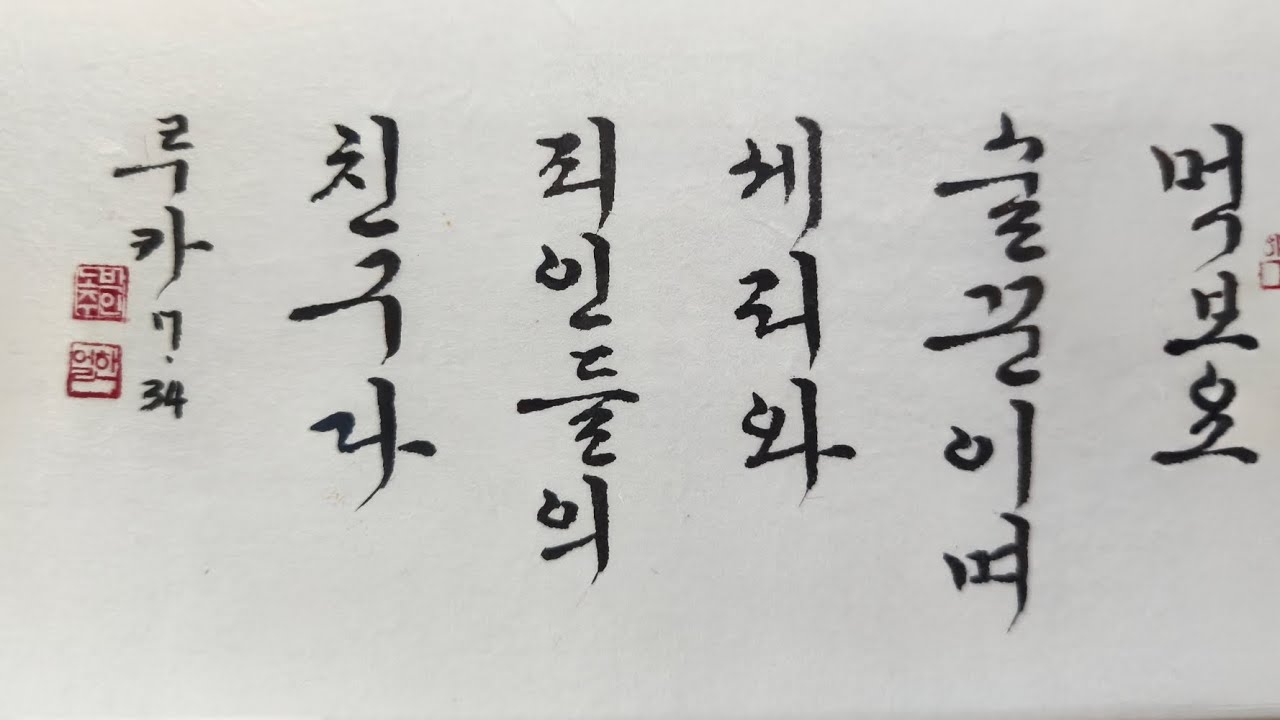 먹보요
술꾼이며
세리와
죄인들의
친구다
루카 7.34
한얼